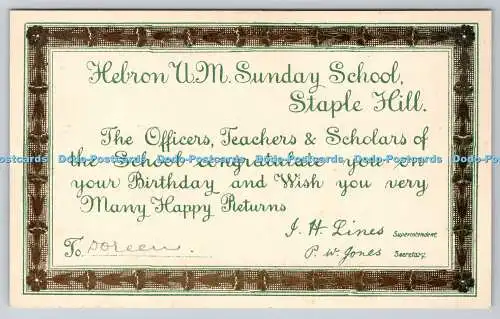 Hebron U.M. Sunday School,
Staple Hill.
The Officers, Teachers & Scholars of
the School congratulate you on
your Birthday and Wish you very
Many Happy Returns
J. H. Lines Superintendent.
To Doreen P. W. Jones Secretary.
Dodo-Postcards Dodo-Postcards Dodo-Postcards Dodo-Postcards